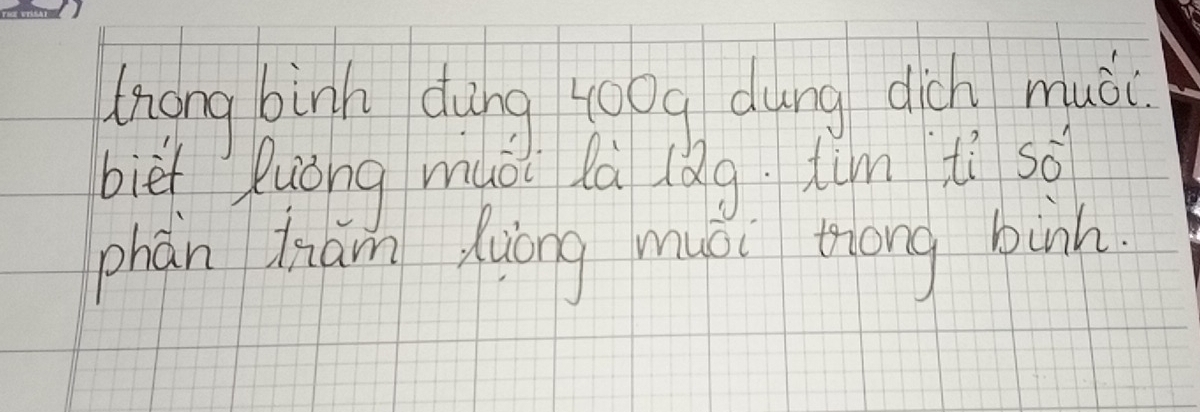 THE VISSAI
trong bình đựng 400g dung dịch muối.
biết lượng muối là 12g. tìm tỉ số
phần trăm lượng muối trong bình.